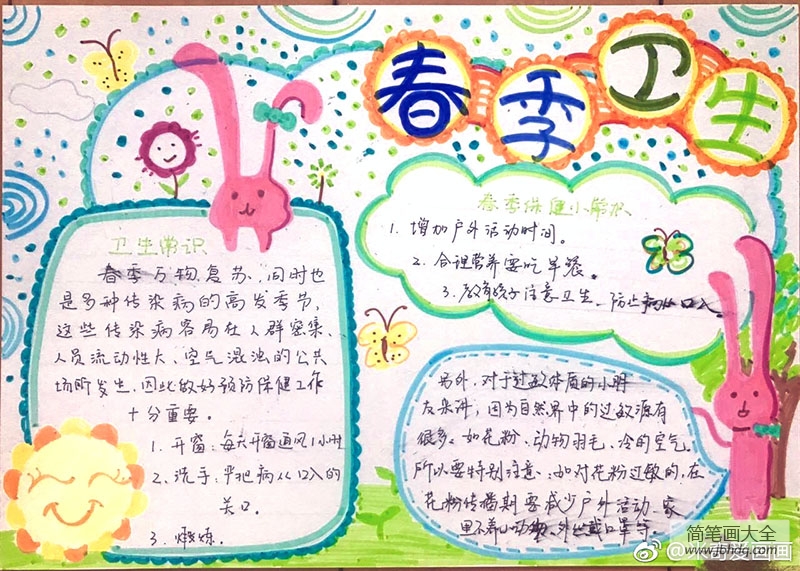 春季卫生
卫生常识
春季万物复苏、同时也
是多种传染病的高发季节,
这些传染病容易在人群密集、
人员流动性大、空气混浊的公共
场所发生,因此做好预防保健工作
十分重要。
1. 开窗:每天开窗通风1小时
2、洗手:严把病从口入的
关口。
3. 锻炼.
春季保健小常识
1. 增加户外活动时间。
2. 合理营养要吃早餐。
3. 教育孩子注意卫生、防止病从口入。
另外,对于过敏体质的小朋
友来讲,因为自然界中的过敏源有
很多、如花粉、动物羽毛、冷的空气,
所以要特别注意、如对花粉过敏的,在
花粉传播期要减少户外活动、家
里不养小动物、外出戴口罩等.
简笔画大全
www.jbhdq.com
爱画画